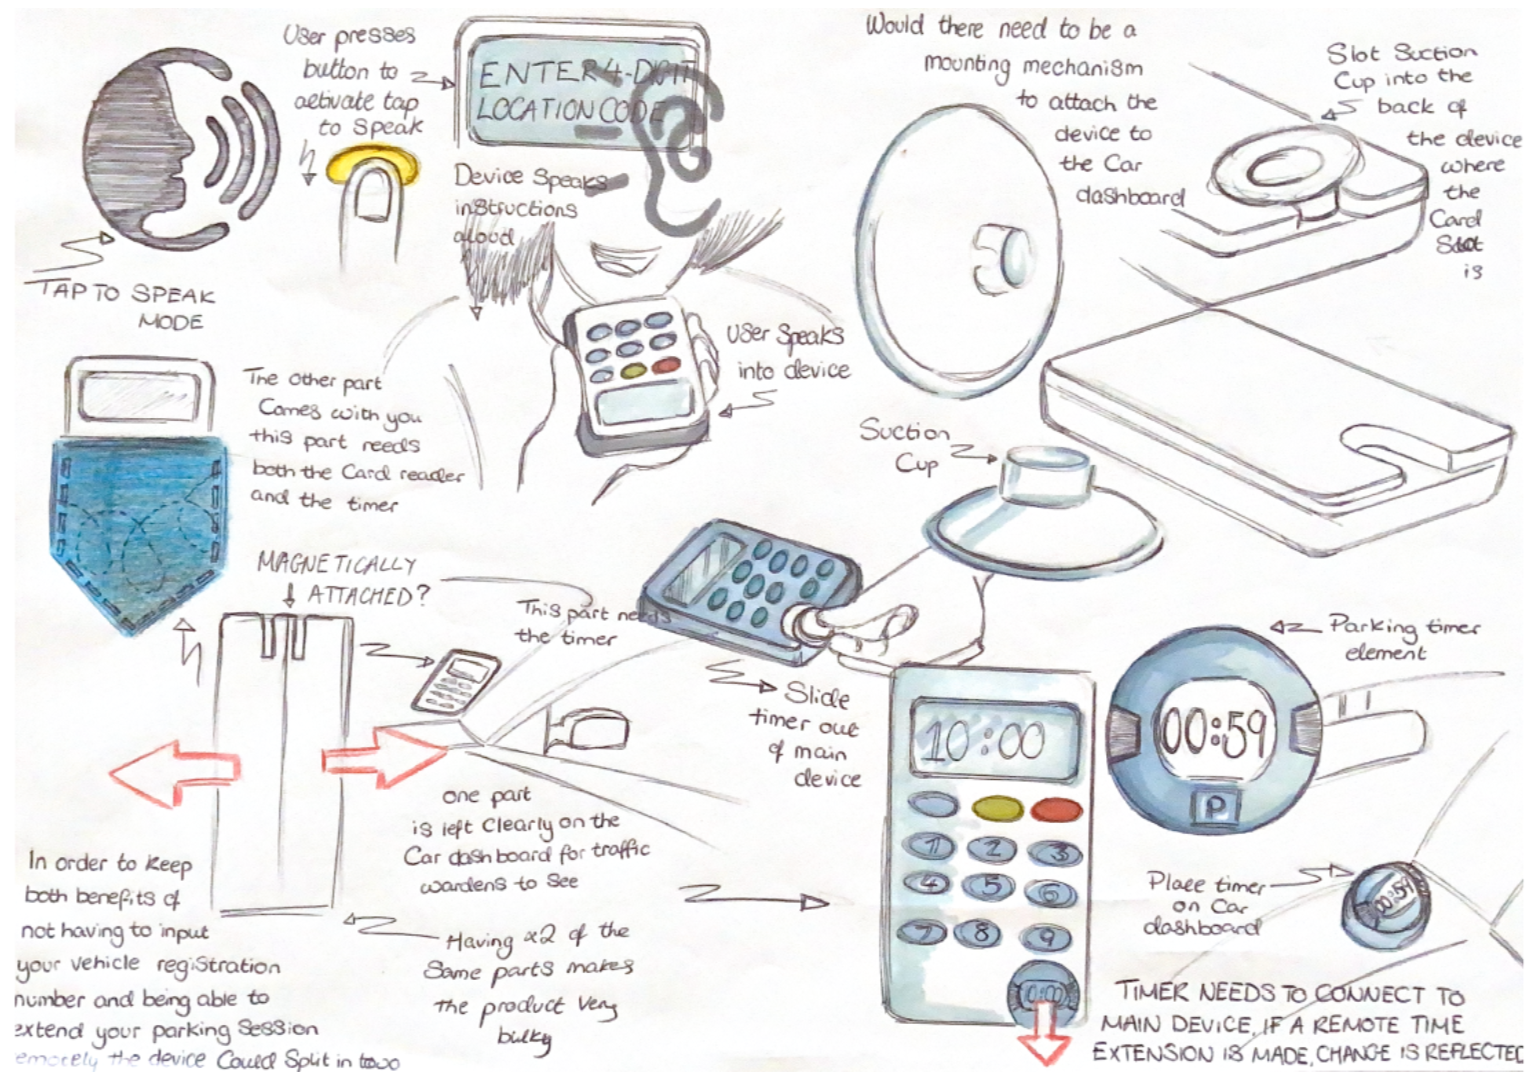 User presses
button to
activate tap
to speak
TAP TO SPEAK
MODE
ENTER 4-DIGIT
LOCATION CODE
Device Speaks
instructions
aloud
User Speaks
into device
Would there need to be a
mounting mechanism
to attach the
device to
the Car
dashboard
Slot Suction
Cup into the
back of
the device
where
the
Card
Slot
is
Suction
Cup
The other part
Comes with you
this part needs
both the Card reader
and the timer
MAGNETICALLY
ATTACHED?
This part needs
the timer
one part
is left Clearly on the
Car dashboard for traffic
wardens to See
Having x2 of the
Same parts makes
the product Very
bulky
In order to keep
both benefits of
not having to input
your vehicle registration
number and being able to
extend your parking Session
remotely the device Could Split in two
Slide
timer out
of main
device
10:00
1 2 3
4 5 6
7 8 9
0:00
Parking timer
element
00:59
P
Place timer
on Car
dashboard
00:59
TIMER NEEDS TO CONNECT TO
MAIN DEVICE, IF A REMOTE TIME
EXTENSION IS MADE, CHANGE IS REFLECTED